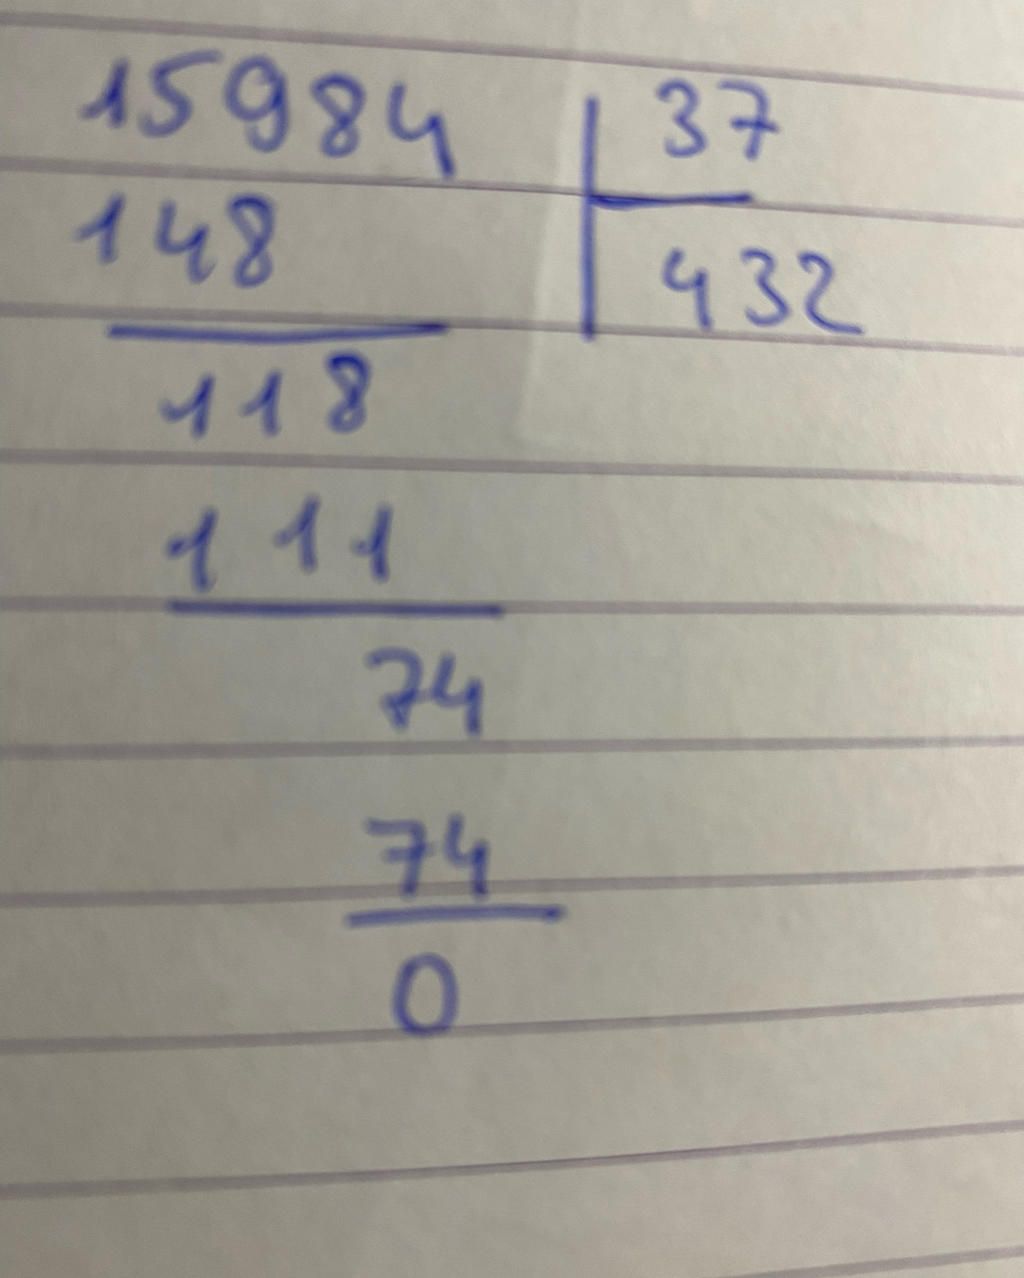 15984 37
148 432
118
111
74
74
0